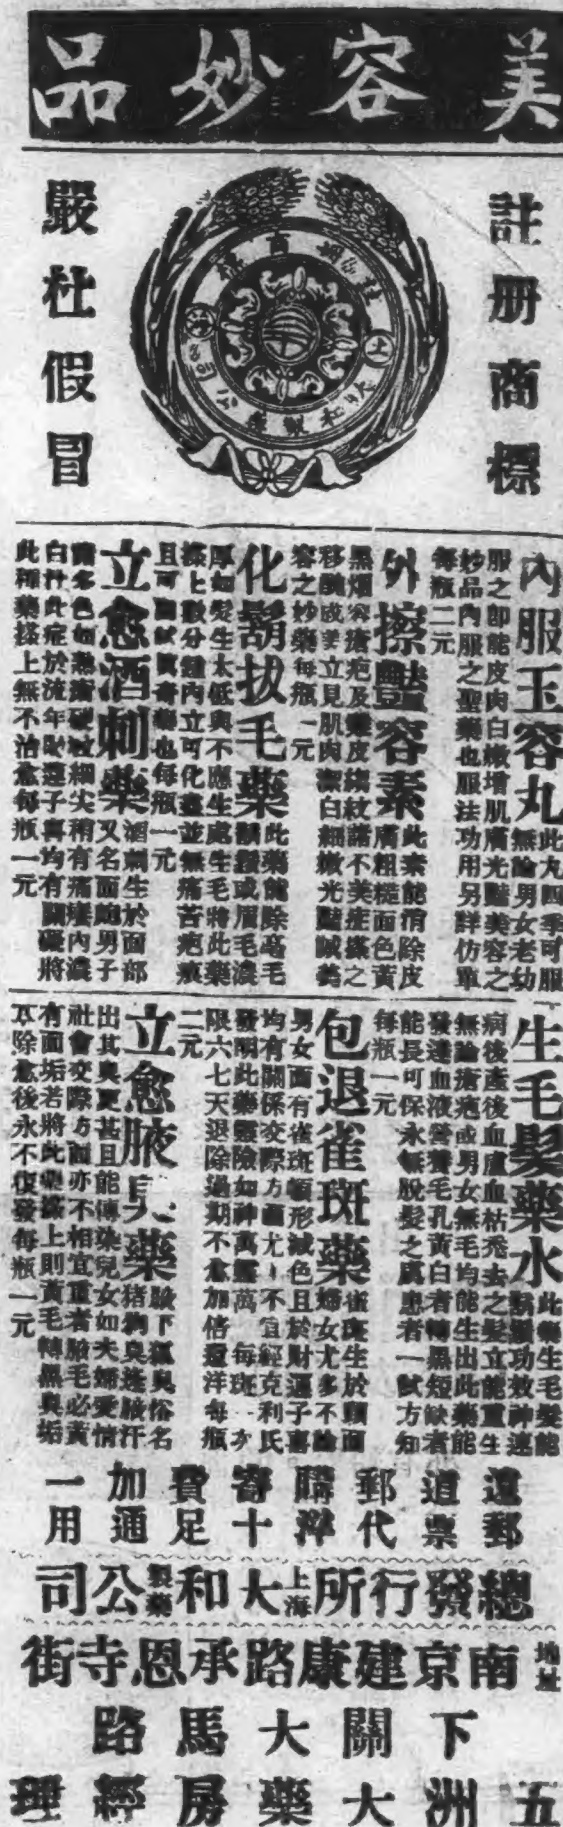 美容妙品
註册商標
嚴杜假冒
內服玉容丸
此丸四季可服
無論男女老幼
服之卽能皮肉白嫩增肌膚光豔美容之
妙品內服之聖藥也服法功用另詳仿單
每瓶二元
外擦豔容素
此素能消除皮
膚粗糙面色黃
黑烟容瘡疤及雞皮縐紋諸不美症擦之
移醜成美立見肌肉潔白細嫩光豔誠美
容之妙藥每瓶一元
化鬍拔毛藥
此藥能除毛
鬍鬚或眉毛濃
厚如髮生太低與不應生處生毛將此藥
擦上數分鐘內立可化盡並無痛苦疤痕
且可面試賣藥也每瓶一元
立愈酒刺藥
酒刺生於面部
又名面皰男子
白汁此症於流年財運子喜均有關礙將
此種藥擦上無不治愈每瓶一元
生毛髮藥水
此藥生毛髮能
功效神速
病後產後血虛血枯禿去之髮立能重生
無論瘡疤或男女無毛均能生出此藥能
發達血液營養毛孔黃白者轉黑短缺者
能長可保永無脫髮之患者一試方知
每瓶一元
包退雀斑藥
雀斑生於顏面
婦女尤多不論
男女面有雀斑頓形減色且於財運子喜
均有關係交際方面尤不宜經克利氏
發明此藥靈險如神萬靈萬每斑一夕
限六七天退除過期不愈加倍還洋每瓶
二元
立愈腋臭藥
腋下狐臭俗名
猪狗臭逢腋汗
出其臭更甚且能傳染兒女如夫婦愛情
社會交際方面亦不相宜重者腋毛必黃
有面垢若將此藥擦上則黃毛轉黑臭垢
本除愈後永不復發每瓶一元
遠道郵購寄費加一
郵票代洋十足通用
總發行所上海大和製藥公司
地址南京建康路承恩寺街
下關大馬路
五洲大藥房經理